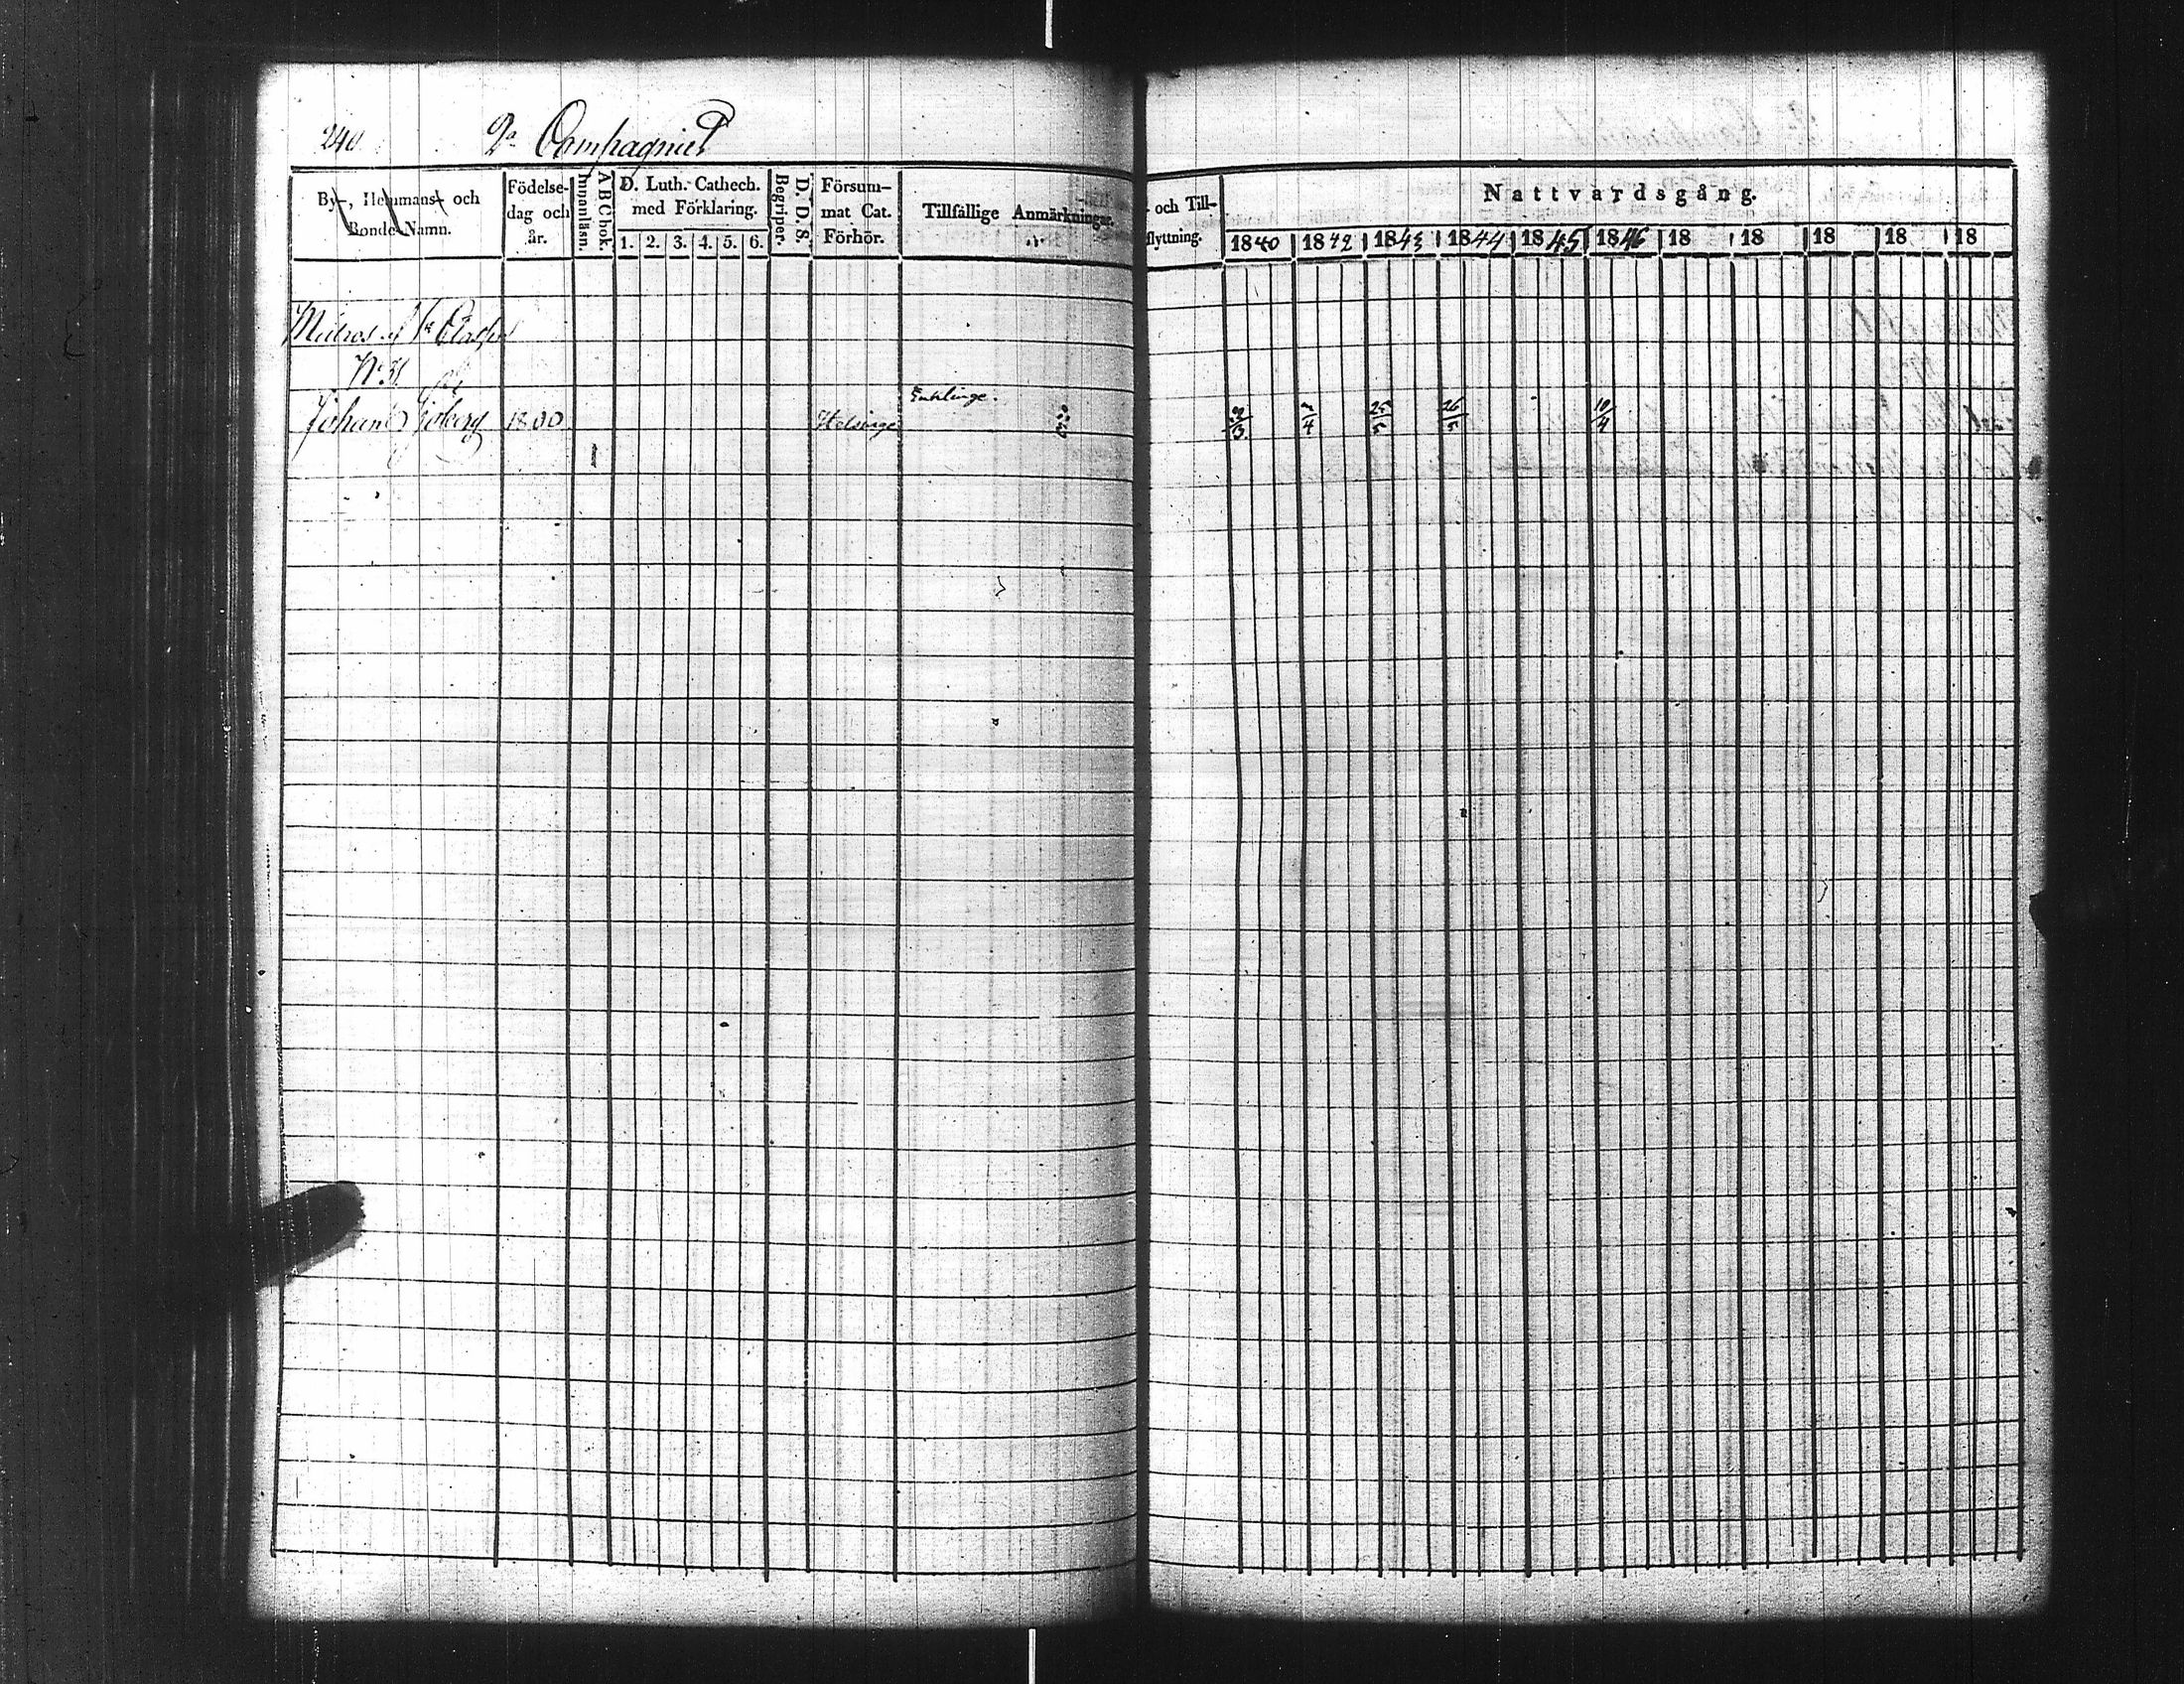 240 2a Compagniet
By-, Hemmans- och Bonde-Namn.
Födelsedag och år.
A B C bok. Innanläsn.
D. Luth. Cathech. med Förklaring.
1. 2. 3. 4. 5. 6.
D. D. S. Begriper.
Försummat Cat. Förhör.
Tillfällige Anmärkningar.
och Till-
flyttning.
Nattvardsgång.
1840 1842 1843 1844 1845 1846 18 18 18 18 18
Matros af 1a Classen
No 31.
Enklinge.
Johan Sjöberg 1800 Helsinge 4/4 25/5 26/5 10/4